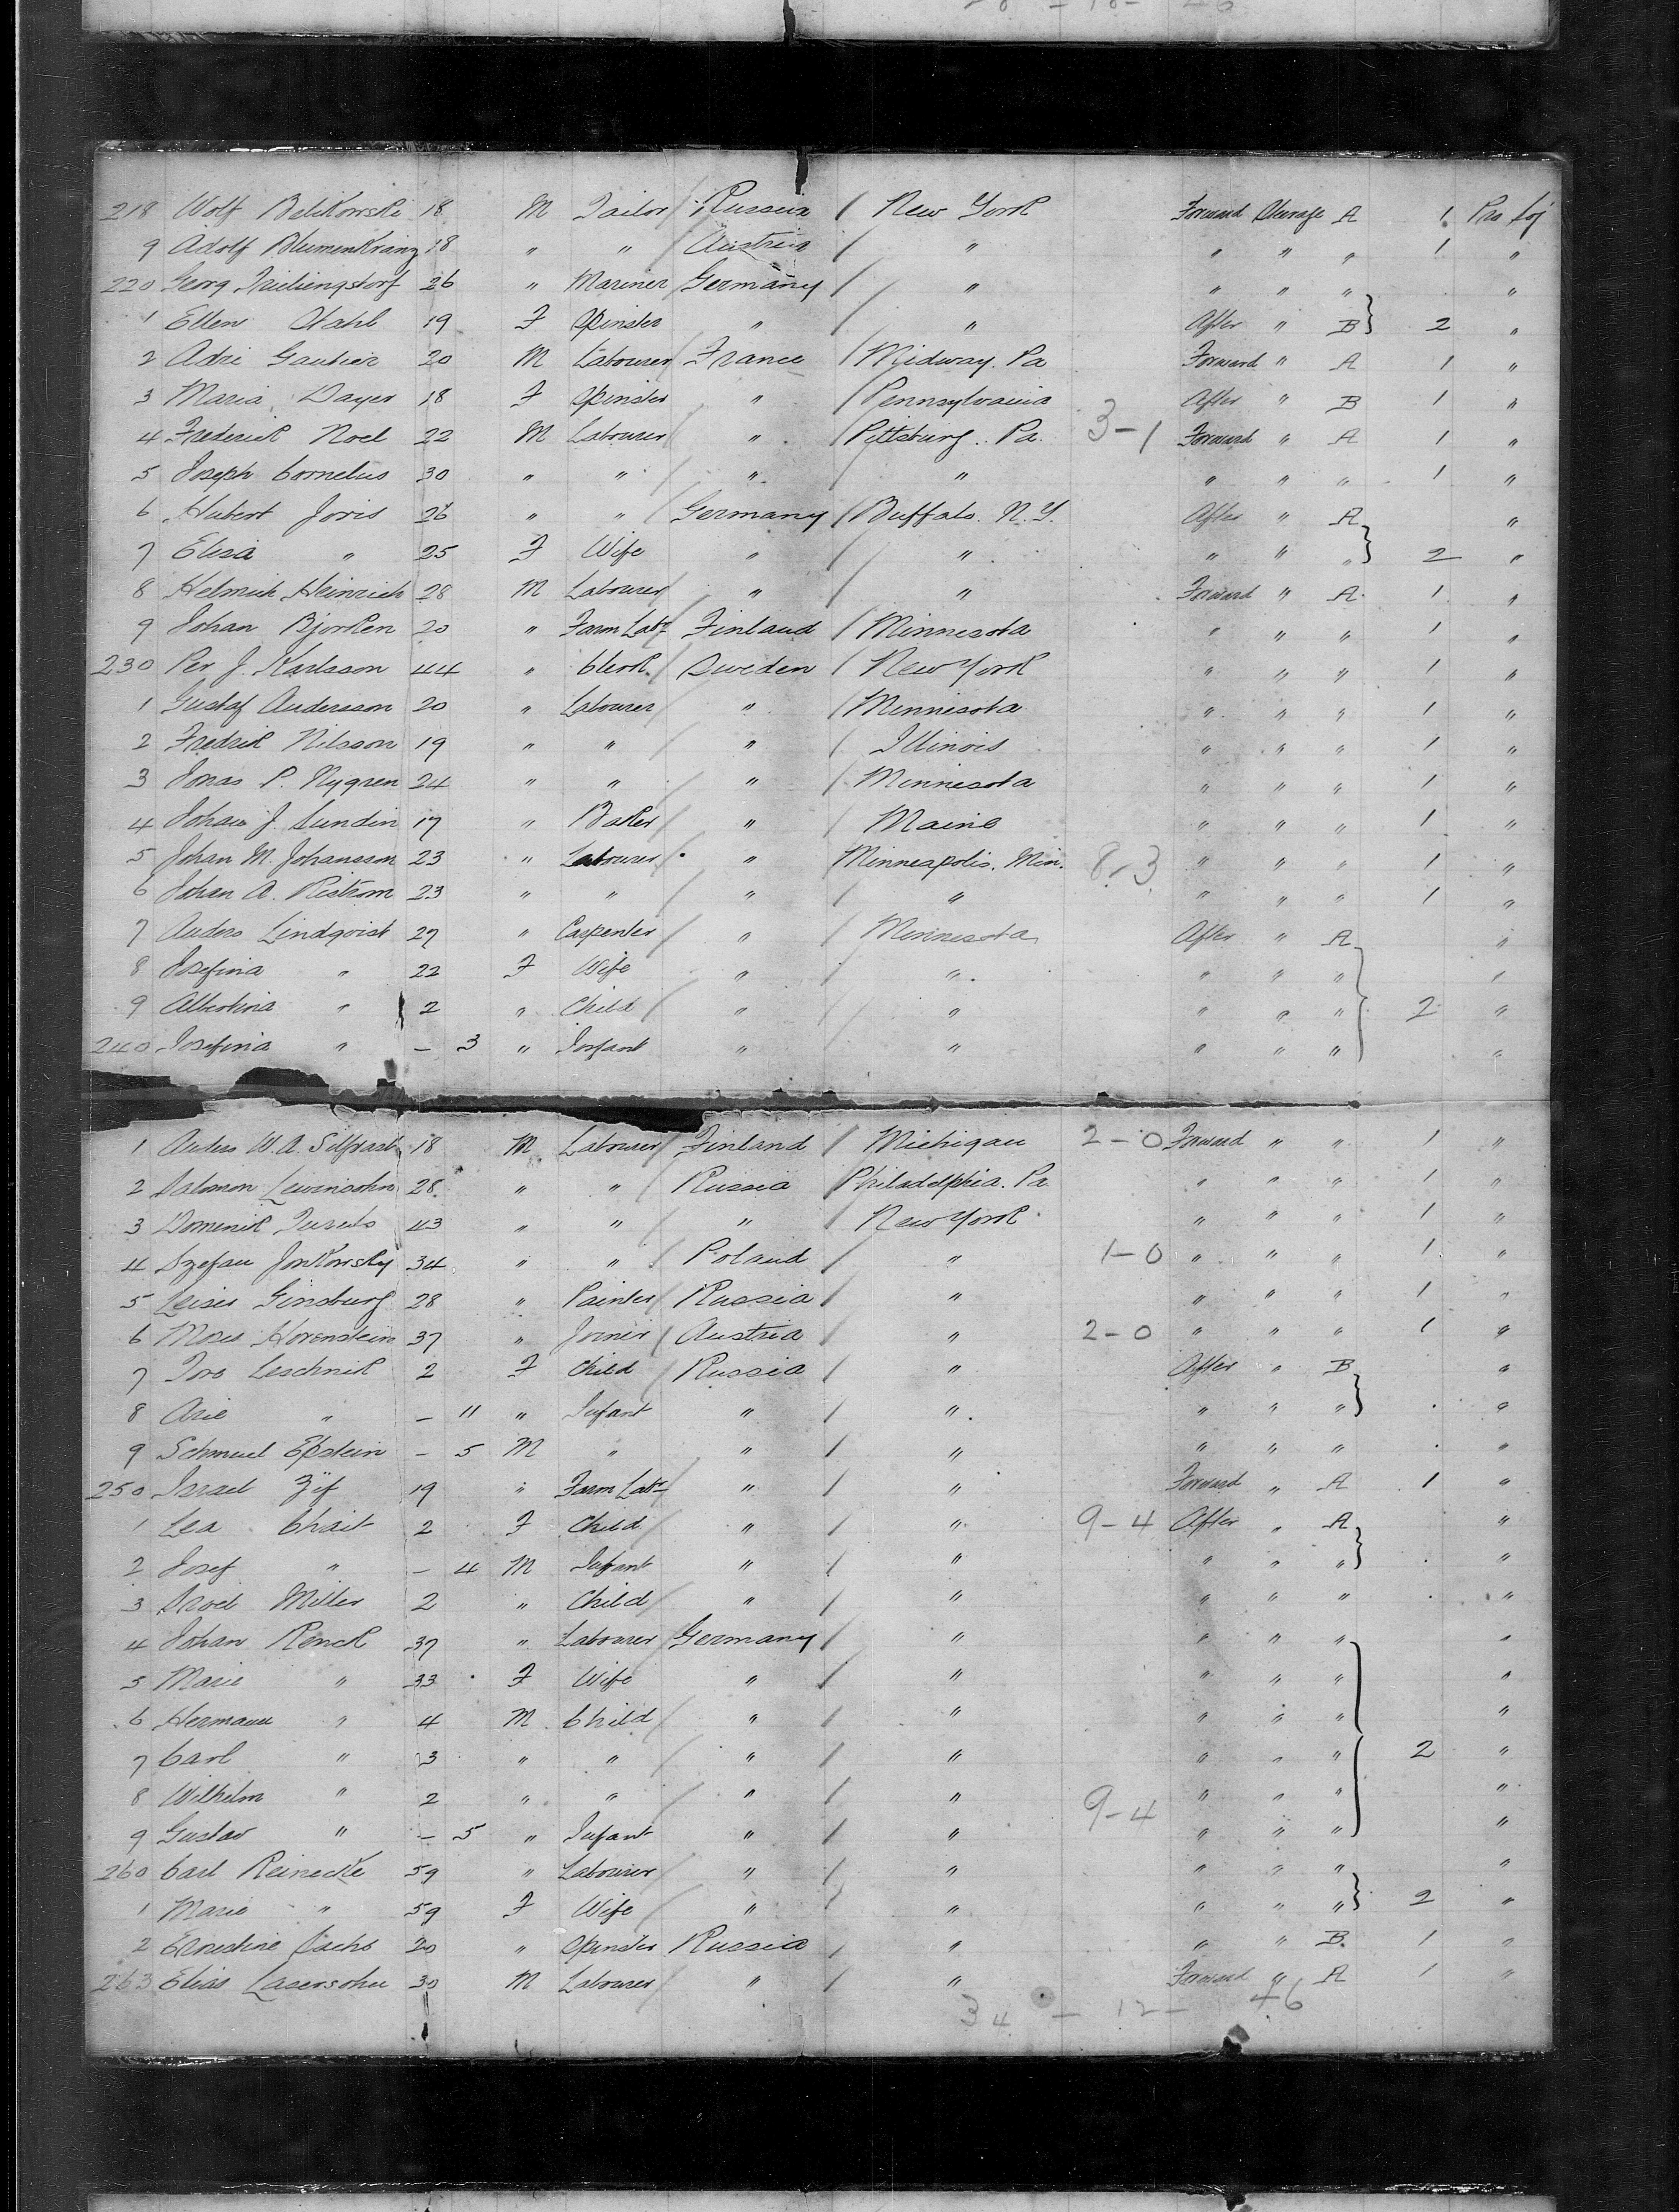 218 Wolf Belikowski 18 M Tailor / Russia / New York Forward Steerage A 1 Pro Soj
9 Adolf Blumenkranz 18 " " / Austria / " " " " 1 "
220 Georg 26 " Mariner / Germany / " " " " "
1 Ellen Stahl 19 F Spinster " / " After " B } 2 "
2 Adri Gautier 20 M Labourer / France / Midway. Pa Forward " A 1 "
3 Maria Dayer 18 F Spinster " / Pennsylvania After " B 1 "
4 Frederick Noel 22 M Labourer / " / Pittsburg. Pa. 3-1 Forward " A 1 "
5 Joseph Cornelus 30 " " / " / " " " " 1 "
6 Hubert Joris 26 " " / Germany / Buffalo. N.Y. After " A "
7 Elisa " 25 F Wife " / " " " " } 2 "
8 Helmich Heinrich 28 M Labourer / " / " Forward " A 1 "
9 Johan Bjorken 20 " Farm Labr / Finland / Minnesota " " " 1 "
230 Per J. Karlsson 44 " Clerk / Sweden / New York " " " 1 "
1 Gustaf Andersson 20 " Labourer / " / Minnesota " " " 1 "
2 Fredrik Nilsson 19 " " / " / Illinois " " " 1 "
3 Jonas P. Nygren 24 " " / " / Minnesota " " " 1 "
4 Johan J. Sundin 17 " Baker / " / Maine " " " 1 "
5 Johan M. Johansson 23 " Labourer / " Minneapolis. Min. 8-3 " " " 1 "
6 Johan A. Riström 23 " " / " / " " " " 1 "
7 Anders Lindqvist 27 " Carpenter " / Minnesota After " A "
8 Josefina " 22 F Wife / " / " " " " "
9 Albertina " 2 " Child / " / " " " " } 2 "
240 Josefina " - 3 " Infant " / " " " " "
1 Anders W. A. 18 M Labourer / Finland / Michigan 2-0 Forward " " 1 "
2 Salomon Lewinsohn 28 " " / Russia / Philadelphia. Pa " " " 1 "
3 Dominik 43 " " / " / New York " " " 1 "
4 Szefan Jonkowsky 34 " " / Poland / " 1-0 " " " 1 "
5 Leiser Ginsburg 28 " Painter / Russia / " " " " 1 "
6 Moses Horenstein 37 " Joiner / Austria / " 2-0 " " " 1 "
7 Leschnik 2 F Child / Russia / " After " B "
8 Arie " - 11 " Infant " / " " " " } "
9 Schmuel Epstein - 5 M " " / " " " " "
250 Israel Zif 19 " Farm Labr / " / " Forward " A 1 "
1 Lea Chait 2 F Child " / " 9-4 After " A "
2 Josef " - 4 M Infant " / " " " " } "
3 Miller 2 " Child / " / " " " " "
4 Johan Renck 37 " Labourer / Germany / " " " " "
5 Marie " 33 F Wife " / " " " " "
6 Hermann " 4 M Child / " / " " " " "
7 Carl " 3 " " / " / " " " " } 2 "
8 Wilhelm " 2 " " / " / " 9-4 " " " "
9 Gustav " - 5 " Infant " / " " " " "
260 Carl Reinecke 59 " Labourer / " / " " " " "
1 Marie " 59 F Wife / " / " " " " } 2 "
2 Ernestine Sachs 20 " Spinster Russia / " " " B. 1 "
263 Elias Lasersohn 30 M Labourer / " / " Forward " A 1 "
34 - 12 - 46